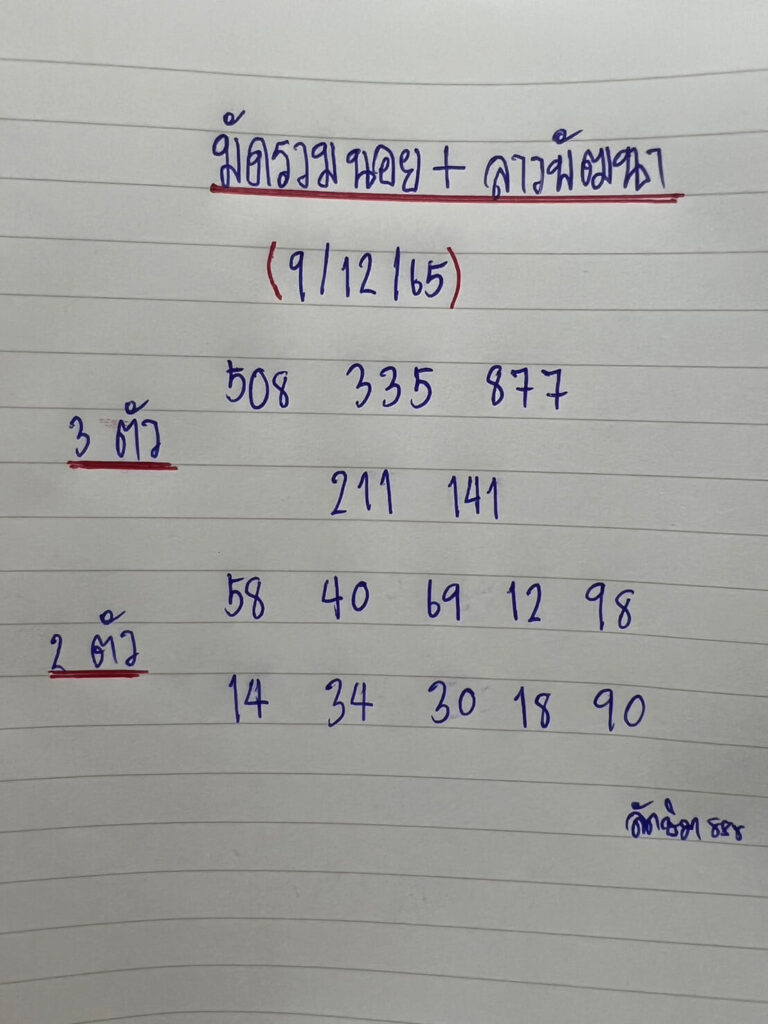 มัดรวมนอย + ลาวพัฒนา
(9/12/65)
508 335 877
3 ตัว
211 141
58 40 69 12 98
2 ตัว
14 34 30 18 90
888